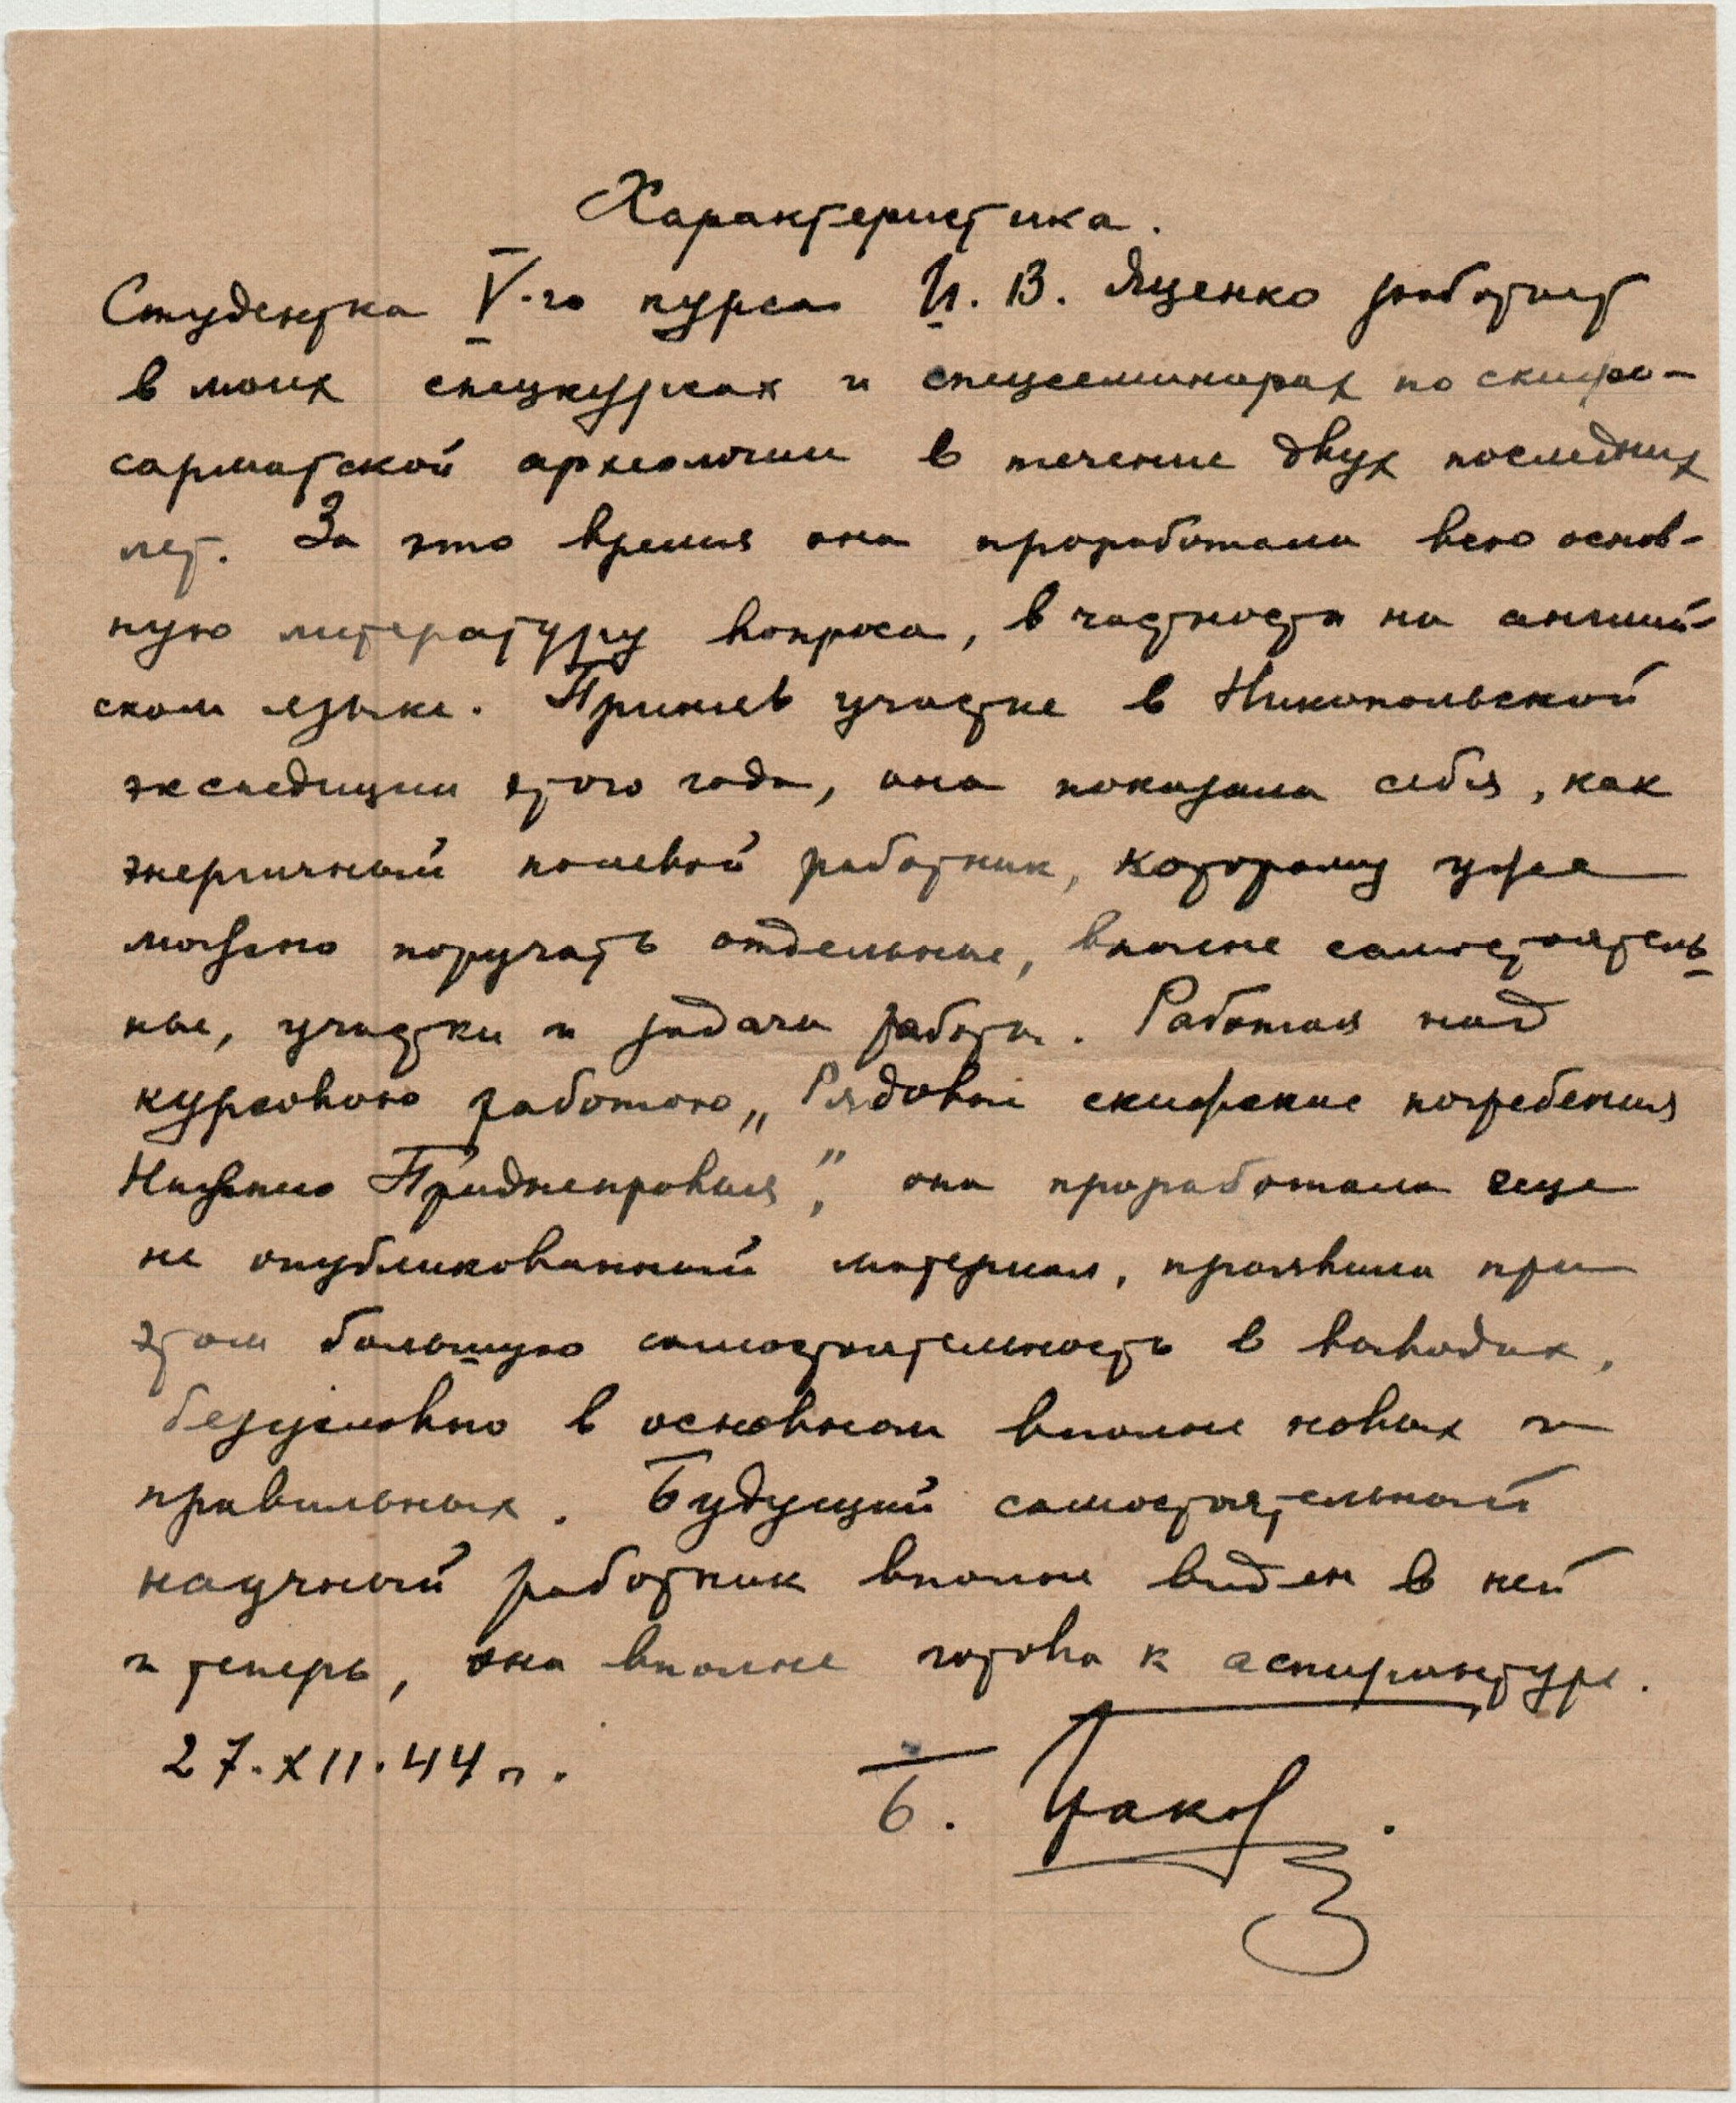 Характеристика.
Студентка V-го курса И. В. Яценко работает
в моих спецкурсах и спецсеминарах по скифо-
сарматской археологии в течение двух последних
лет. За это время она проработала всю основ-
ную литературу вопроса, в частности на англий-
ском языке. Приняв участие в Никопольской
экспедиции этого года, она показала себя, как
энергичный полевой работник, которому уже
можно поручать отдельные, вполне самостоятель
ные, участки и задачи работы. Работая над
курсовою работою „Рядовые скифские погребения
Нижнего Приднепровья", она проработала еще
не опубликованный материал, проявила при
этом большую самостоятельность в выводах,
безусловно в основном вполне новых и
правильных. Будущий самостоятельный
научный работник вполне виден в ней
и теперь, она вполне готова к аспирантуре.
27.XII.44 г.
Б. Граков.